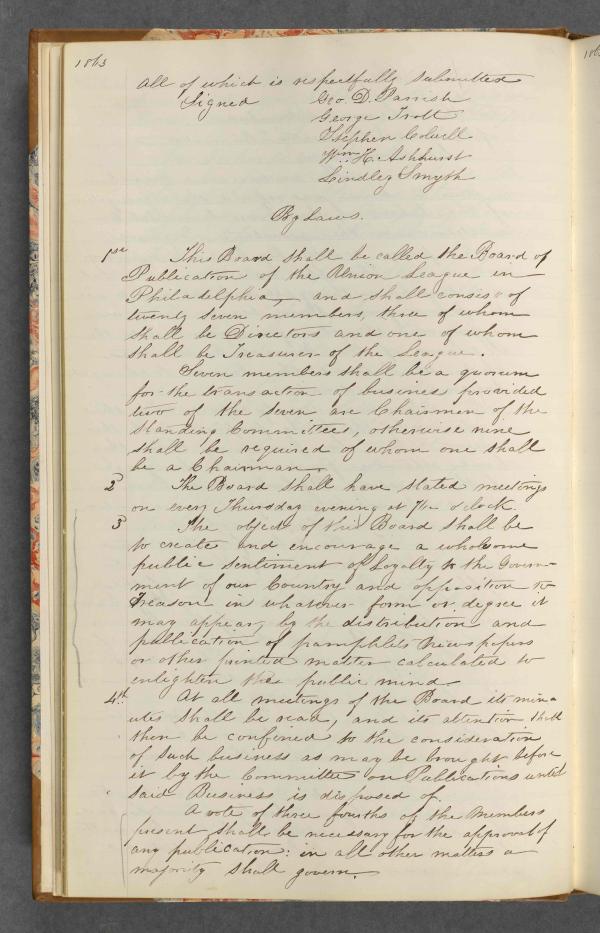 1863
all of which is respectfully submitted
Signed Geo. D. Parrish
George Trott
Stephen Colwell
Wm. H. Ashhurst
Lindley Smyth
By Laws.
1st This Board shall be called the Board of
Publication of the Union League in
Philadelphia, and shall consist of
twenty seven members, three of whom
shall be Directors and one of whom
shall be Treasurer of the League.
Seven members shall be a quorum
for the transaction of business provided
two of the seven, are Chairmen of the
Standing Committees, otherwise nine
shall be required of whom one shall
be a Chairman
2 The Board shall have stated meetings
on every Thursday evening at 7½ o'clock.
3 The object of this Board shall be
to create and encourage a wholesome
public sentiment of Loyalty to the Govern-
ment of our Country and opposition to
Treason in whatever form or degree it
may appear, by the distribution and
publication of pamphlets Newspapers
or other printed matter calculated to
enlighten the public mind
4th. At all meetings of the Board its min-
utes shall be read, and its attention shall
then be confined to the consideration
of such business as may be brought before
it by the Committee on Publications until
said Business is disposed of.
A vote of three fourths of the Members
present shall be necessary for the approval of
any publication: in all other matters a
majority shall govern.
186